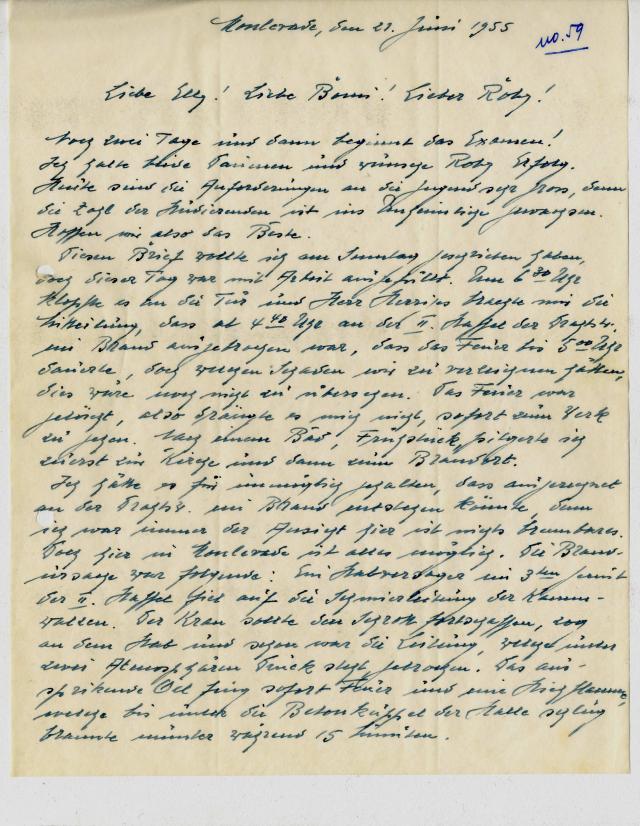 Monlevade, den 21. Juni 1955
no. 59
Liebe Elly! Liebe Bomi! Lieber Roby!
Noch zwei Tage und dann beginnt das Examen!
Ich halte beide Daumen und wünsche Roby Erfolg.
Heute sind die Anforderungen an die Jugend sehr gross, denn
die Zahl der Studierenden ist ins Unheimliche gewachsen.
Hoffen wir also das Beste.
Diesen Brief wollte ich am Sonntag geschrieben haben,
doch dieser Tag war mit Arbeit ausgefüllt. Um 6 30 Uhr
klopfte es an die Tür und Herr machte mir die
Mitteilung, dass at 4 40 Uhr an der II. Staffel der Drahtstr.
ein Brand ausgebrochen war, dass das Feuer bis 5 00 Uhr
dauerte, doch welchen Schaden wir zu verzeichnen hätten,
dies wäre noch nicht zu übersehen. Das Feuer war
gelöscht, also drängte es mich nicht, sofort zum Werk
zu gehen. Nach einem Bad, Frühstück, pilgerte ich
zuerst zur Kirche und dann zum Brandort.
Ich hätte es für unmöglich gehalten, dass ausgerechnet
an der Drahtstr. ein Brand entstehen könnte, denn
ich war immer der Ansicht hier ist nichts brennbares.
Doch hier in Monlevade ist alles möglich. Die Brand-
ursache war folgende: Ein Stabversager im 3ten Gerüst
der II. Staffel fiel auf die Schmierleitung der Kamm-
walzen. Der Kran sollte den Schrott fortschaffen, zog
an dem Stab und schon war die Leitung, welche unter
zwei Atmosphären Druck steht gebrochen. Das aus-
spritzende Oel fing sofort Feuer und eine Stichflamme,
welche bis unter die Betonkuppel der Halle schlug
brannte munter während 15 Minuten.